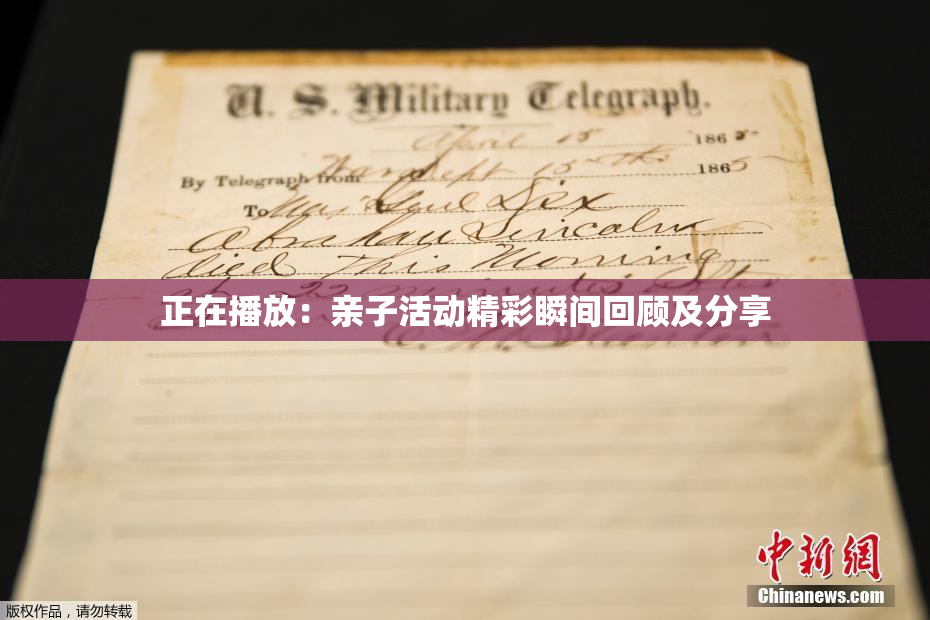 U. S. Military Telegraph.
April 15 1865.
By Telegraph from War Dept 15th 1865
To Maj Genl Dix
Abraham Lincoln
died This Morning
at 22 minutes after
正在播放：亲子活动精彩瞬间回顾及分享
E. M. Stanton
中新網
Chinanews.com
版权作品，请勿转载